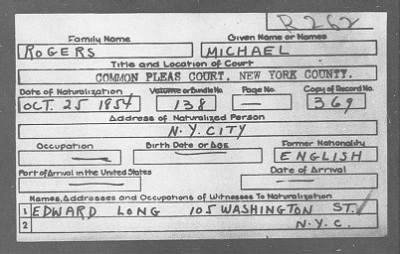 R262
Family Name Given Name or Names
ROGERS MICHAEL
Title and Location of Court
COMMON PLEAS COURT, NEW YORK COUNTY.
Date of Naturalization Volume or Bundle No. Page No. Copy of Record No.
OCT. 25 1854 138 — 369
Address of Naturalized Person
N.Y. CITY
Occupation Birth Date or Age Former Nationality
— — ENGLISH
Port of Arrival in the United States Date of Arrival
— —
Names, Addresses and Occupations of Witnesses To Naturalization
1 EDWARD LONG 105 WASHINGTON ST.
2 N.Y.C.